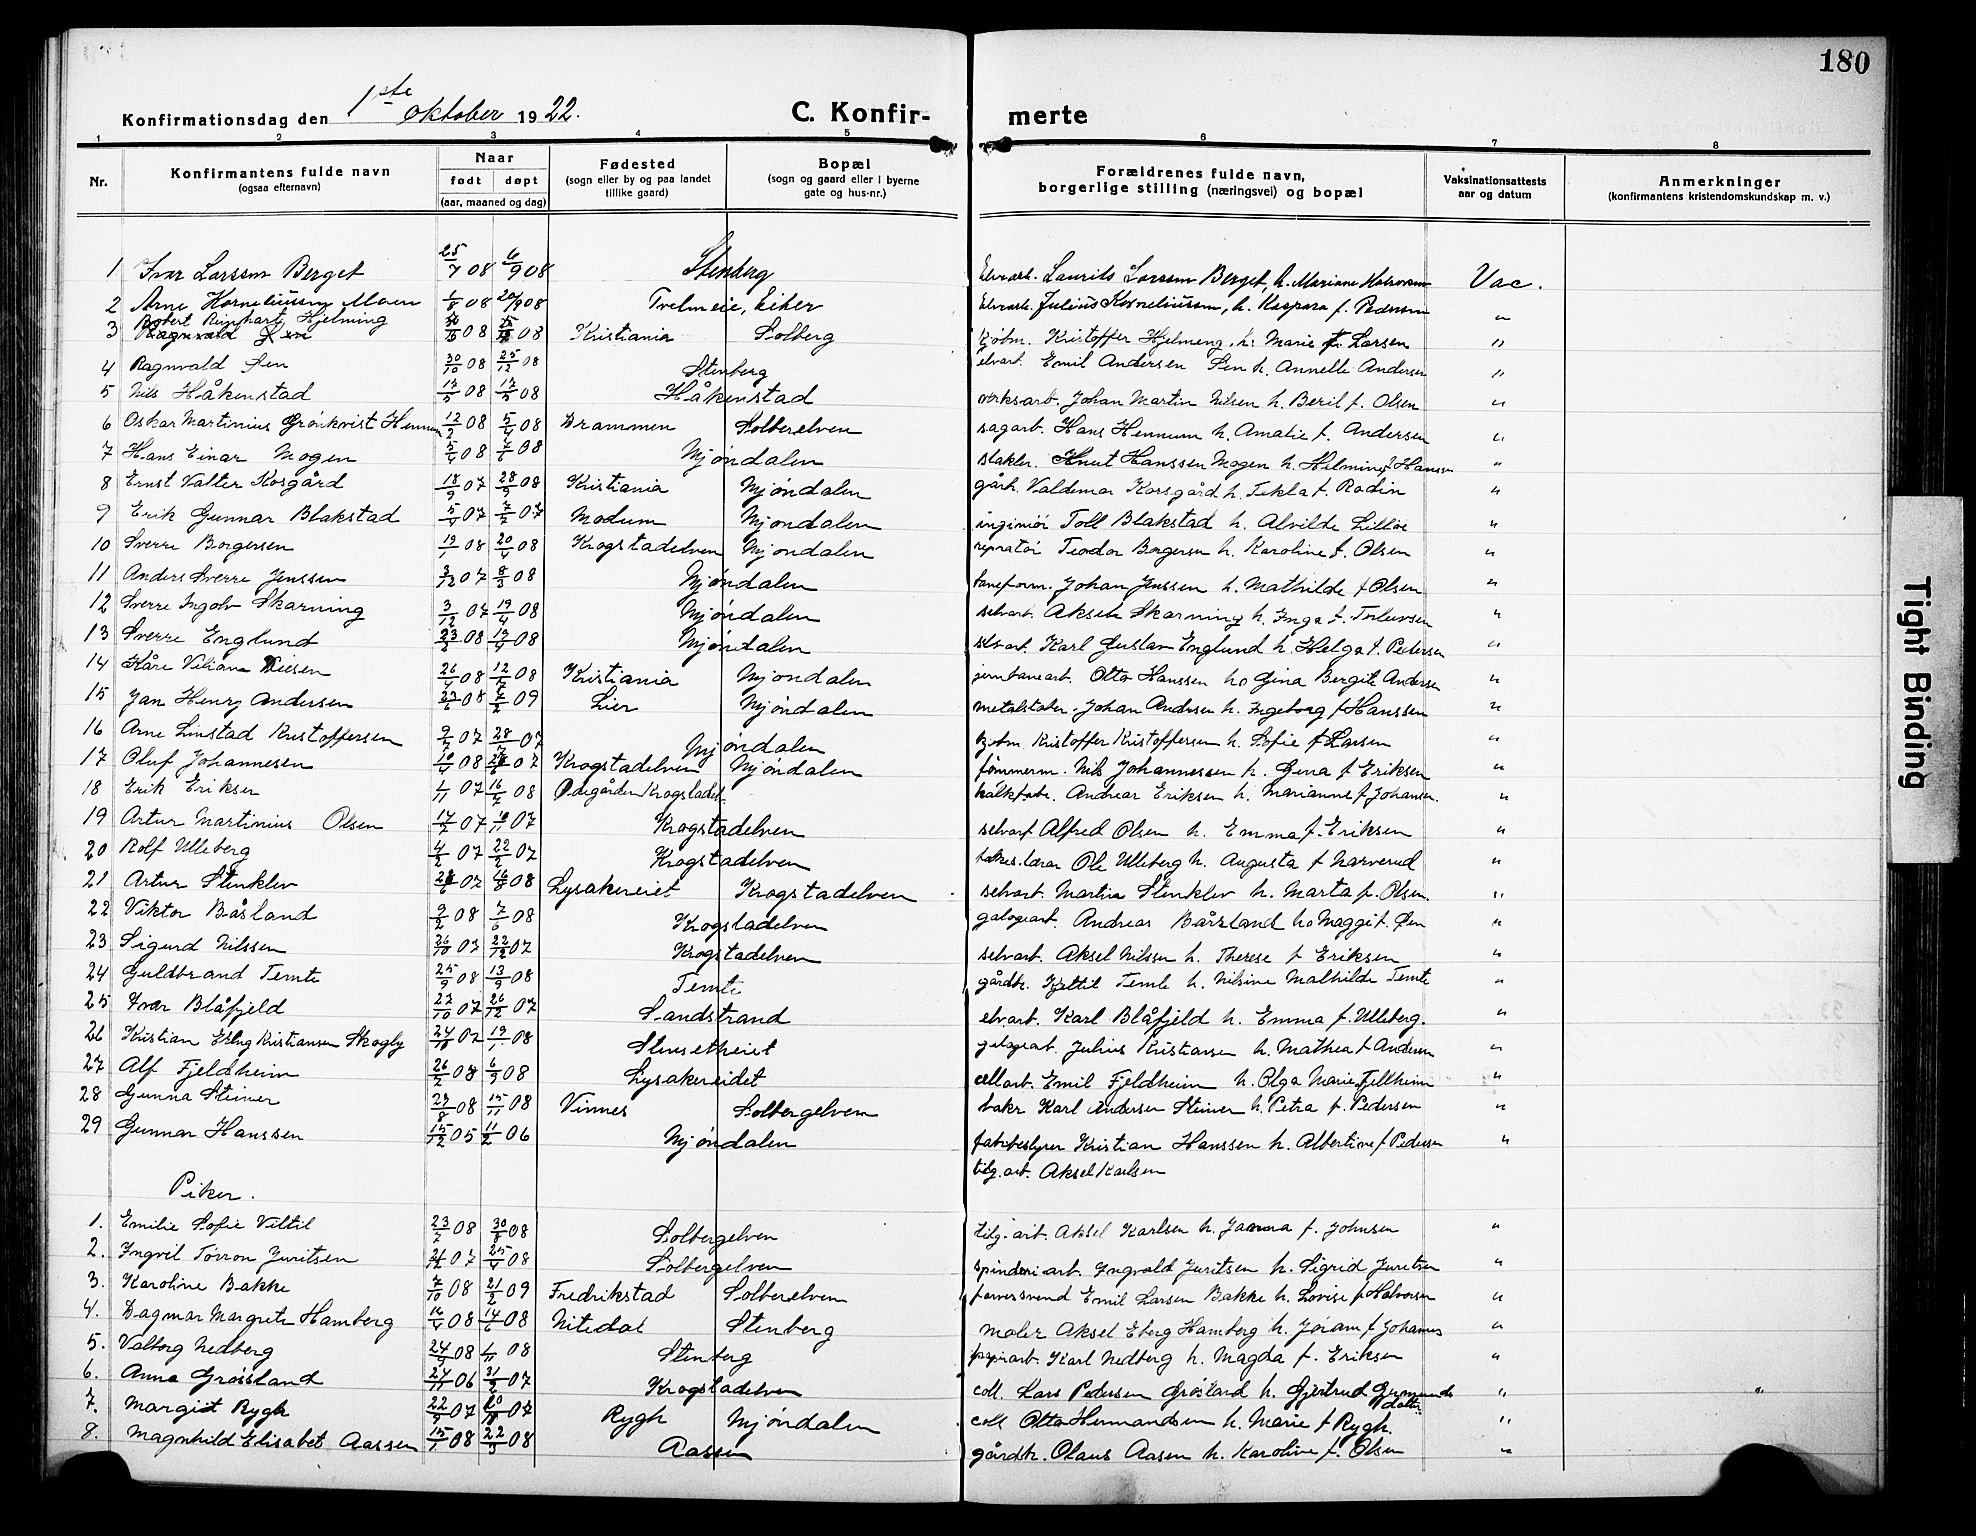 180
Konfirmationsdag den 1ste oktober 1922.
C. Konfirmerte
1 2 3 4 5 6 7 8
Nr. Konfirmantens fulde navn (ogsaa efternavn) Naar født døpt (aar, maaned og dag) Fødested (sogn eller by og paa landet tillike gaard) Bopæl (sogn og gaard eller i byerne gate og hus-nr.) Forældrenes fulde navn, borgerlige stilling (næringsvei) og bopæl Vaksinationsattests aar og datum Anmerkninger (konfirmantens kristendomskundskap m. v.)
1 Ivar Larssen Berget 25/7 08 6/9 08 Stenberg Elvearb. Laurits Larssen Berget, h. Mariane Vac.
2 Arne Korneliussen Moen 1/8 08 20/9 08 Tvelmeie, Eiker Elvearb. Julius Korneliussen, h. Kaspara f. Pedersen "
3 Robert Reinhart Hjelming 08 08 Kristiania Solberg Kristoffer Hjelmeng, h. Marie f. Larsen "
4 Ragnvald Sen 30/10 08 25/12 08 Stenberg elvarb. Emil Andersen Sen h. Annelle Andersen "
5 Nils Håkenstad 08 08 Håkenstad verksarb. Johan Martin Nilsen h. Beril f. Olsen "
6 Oskar Martinius Grönkvist Hennum 12/2 08 5/4 08 Drammen Solberelven sagarb. Hans Hennum h. Amalie f. Andersen "
7 Hans Einar Mogen 5/4 08 7/6 08 Mjöndalen slakter. Knut Hanssen Mogen h. Helmine f Hanssen "
8 Ernst Valter Kosgård 18/9 07 28/9 08 Kristiania Mjöndalen gårb. Valdemar Korsgård h. Tekla f. Rodin "
9 Erik Gunnar Blakstad 5/4 07 7/7 07 Modum Mjöndalen ingeniör Toll Blakstad h. Alvilde Lilloe "
10 Sverre Borgersen 19/1 08 20/4 08 Krogstadelven Mjöndalen repratör Teodor Borgersen h. Karoline f. Olsen "
11 Anders Sverre Jenssen 3/12 07 8/3 08 Mjöndalen baneform. Johan Jenssen h. Mathilde f Olsen "
12 Sverre Ingolv Skarning 3/12 07 19/4 08 Mjöndalen selvarb. Aksel Skarning h. Inga f. "
13 Sverre Englund 23/2 08 19/4 08 Mjöndalen selvarb. Karl Gustav Englund h. Helga f. Pedersen "
14 Kåre Viliam Nilsen 26/4 08 12/7 08 Kristiania Mjöndalen jernbanearb. Otto Hanssen h. Gina Bergite Andersen "
15 Jan Henry Andersen 27/6 08 09 Lier Mjöndalen metalstøber. Johan Andersen h. Ingeborg f Hanssen "
16 Arne Linstad Kristoffersen 07 28/7 07 Mjöndalen Kristoffer Kristoffersen h. Sofie f Larsen "
17 Oluf Johannesen 10/4 08 07 Krogstadelven Mjöndalen tömmerm. Nils Johannessen h. Gena f Eriksen "
18 Erik Eriksen 1/11 07 16/7 08 Odegården Krogstadel. kalkfabr. Andreas Eriksen h. Marianne f Johansen. "
19 Artur Martinius Olsen 17/7 07 10/11 07 Krogstadelven selvarb Alfred Olsen h. Emma f. Eriksen "
20 Rolf Ulleberg 4/2 07 22/2 07 Krogstadelven Ole Ulleberg h. Augusta f Narverud "
21 Artur Stenklev 07 16/8 08 Lysakereiet Krogstadelven selvarb. Martin Stenklev h. Marta f. Olsen. "
22 Viktor Båsland 9/2 08 7/6 08 Krogstadelven galogearb. Andreas Bårsland h. Maggi f. "
23 Sigurd Nilssen 26/10 07 22/12 07 Krogstadelven selvarb. Aksel Nilssen h. Therese f Eriksen "
24 Guldbrand Temte 25/9 08 13/9 08 Temte gårdbr. Kjettil Temte h. Nilsine Mathilde Temte "
25 Ivar Blåfjeld 27/10 07 26/12 07 Sandstrand elvarb. Karl Blåfjeld h. Emma f. Ulleberg. "
26 Kristian Erling Kristiansen Skogly 24/10 07 19/1 08 Stensetheiet galogearb. Julius Kristiansen h. Mathea f Andersen "
27 Alf Fjeldheim 26/2 08 6/9 08 Lysakereidet cellarb. Emil Fjeldheim h. Olga Marie Fjellheim "
28 Gunna Steiner 23/8 08 15/11 08 Vinnes Solbergelven bakr Karl Andersen Steiner h. Petra f. Pedersen "
29 Gunnar Hanssen 15/12 05 11/2 06 Mjöndalen fabrbestyrer Kristian Hanssen h. Albertine f Pedersen "
tilg. arb. Aksel Karlsen
Piker.
1. Emilie Sofie Veltil 23/7 08 30/8 08 Solbergelven tilg. arb. Aksel Karlsen h. Janna f. Johnsen "
2. Ingvil Torron Juritsen 07 25/4 08 Solbergelven spinderiarb. Ingvald Juritsen h. Sigrid Juritsen "
3. Karoline Bakke 7/10 08 21/2 09 Fredrikstad Solberelven farversvend Emil Larsen Bakke h. Lovise f Halvorsen "
4. Dagmar Margrete Hamberg 16/4 08 14/6 08 Nitedal Stenberg maler Aksel Eberg Hamberg h. f Johannes "
5. Valborg Nedberg 24/9 08 1/11 08 Stenberg papirarb. Karl Nedberg h. Magda f. Eriksen "
6. Anna Grössland 27/11 06 31/2 07 Krogstadelven coll. Lars Pedersen Gröslard h. Gjertrud Gusmunds datter " "
7. Margit Rygh 22/9 07 20/10 07 Rygh Mjöndalen coll Otto Hermandsen h. Marie f Rygh. "
8. Magnhild Elisabet Aassen 15/1 08 22/3 08 Aassen gårdbr. Olaus Aasen h. Karoline f. Olsen "
Tight Binding